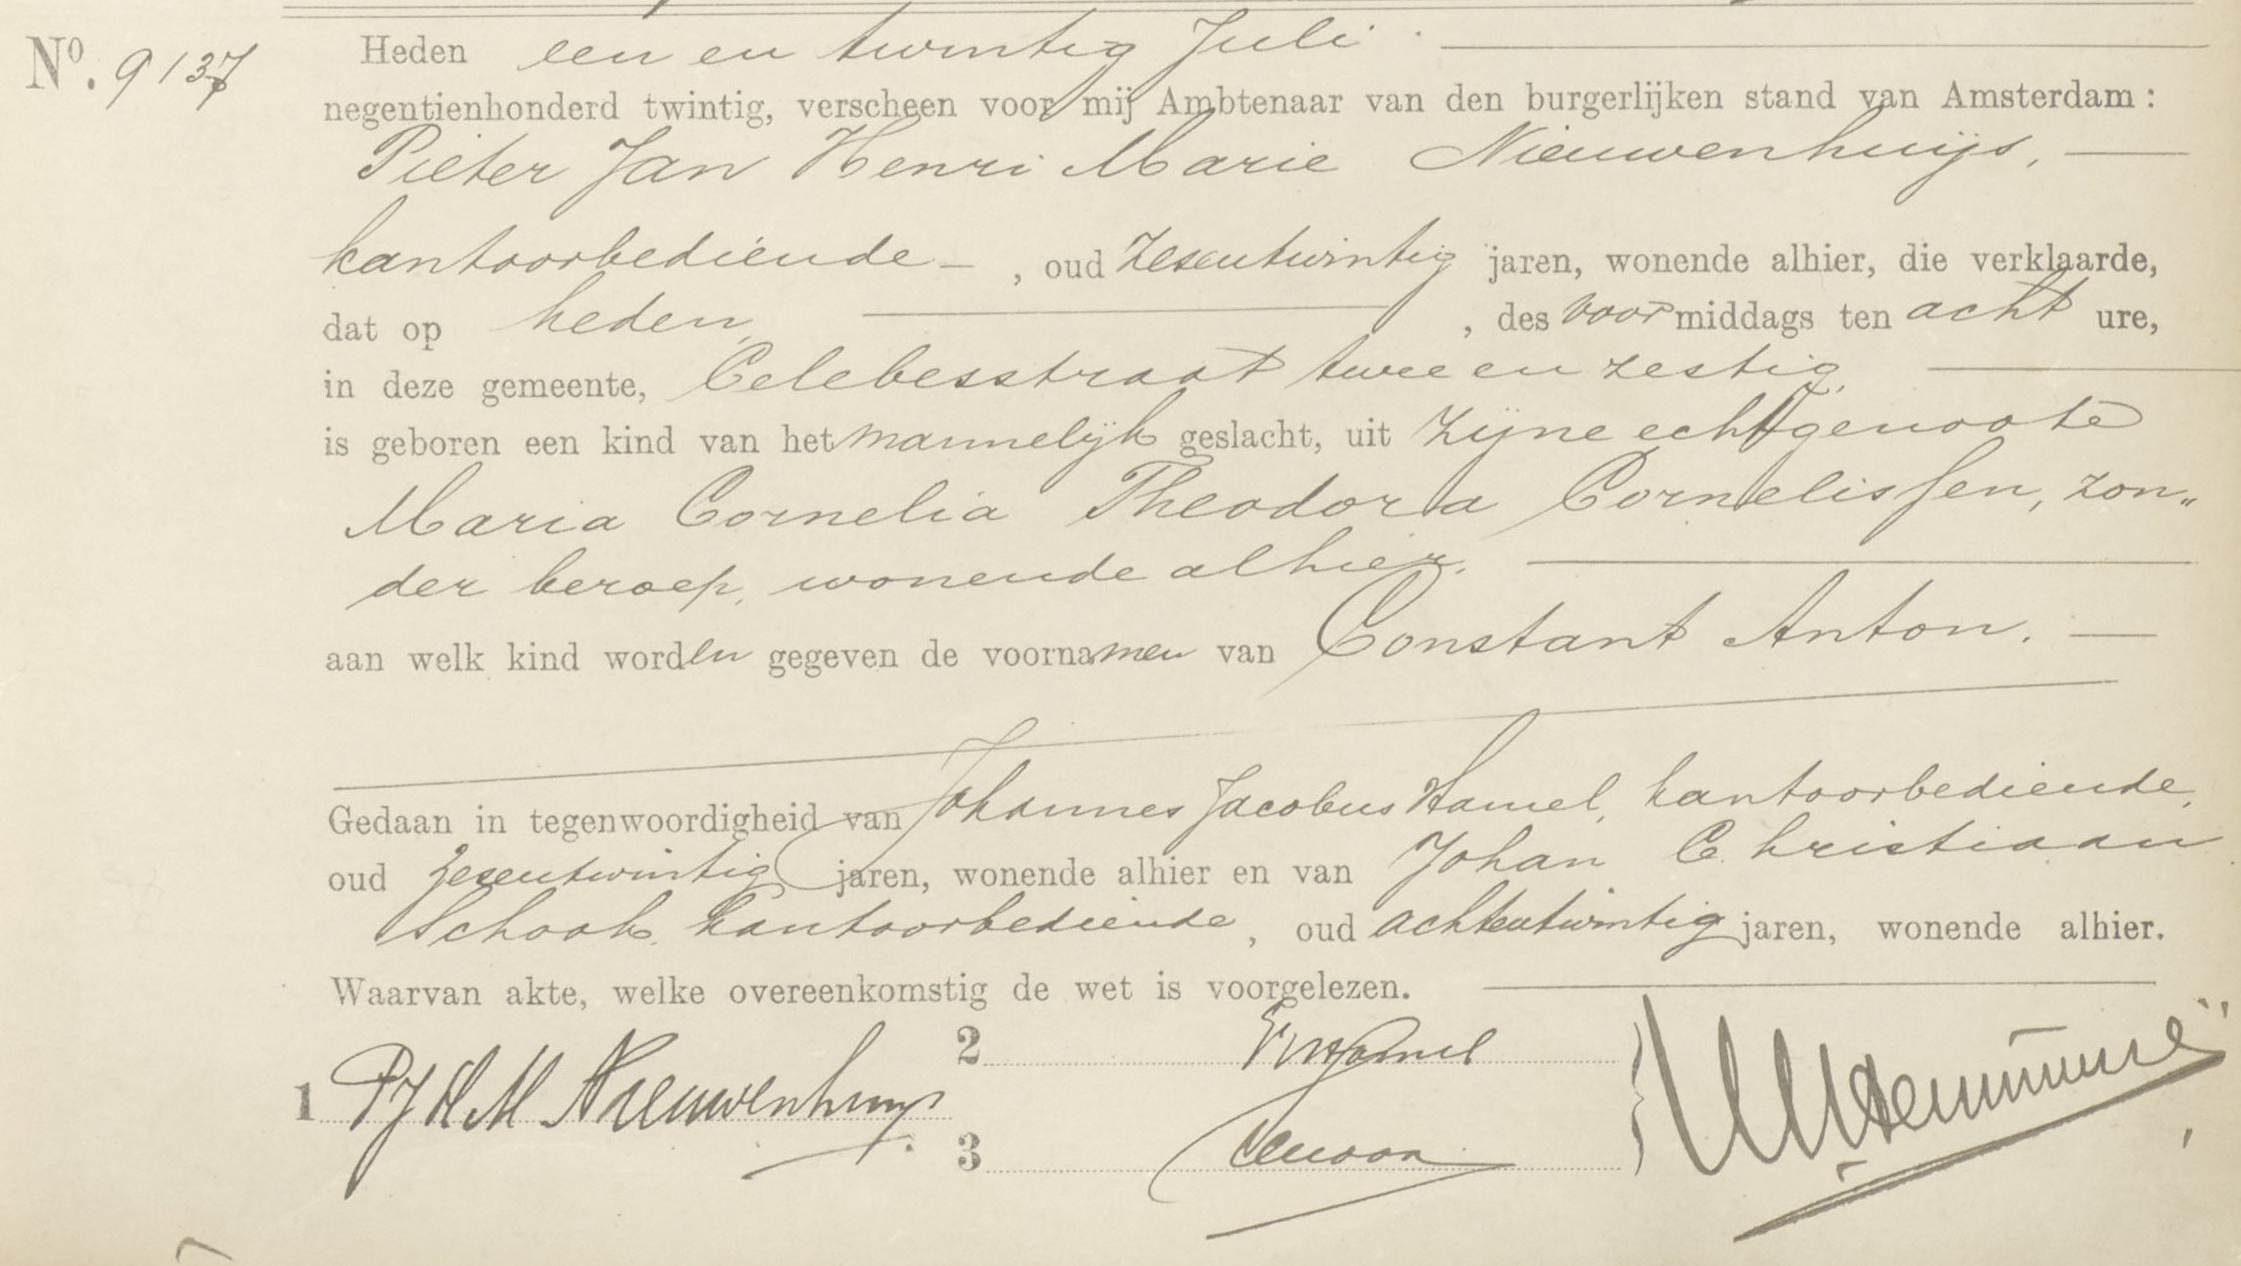 No. 9137 Heden een en twintig Juli
negentienhonderd twintig, verscheen voor mij Ambtenaar van den burgerlijken stand van Amsterdam:
Pieter Jan Henri Marie Nieuwenhuijs,
kantoorbediende, oud zesentwintig jaren, wonende alhier, die verklaarde,
dat op heden, des voormiddags ten acht ure,
in deze gemeente, Celebesstraat twee en zestig,
is geboren een kind van het mannelijk geslacht, uit zijne echtgenoote
Maria Cornelia Theodora Cornelissen, zon„
der beroep, wonende alhier.
aan welk kind worden gegeven de voornamen van Constant Anton.
Gedaan in tegenwoordigheid van Johannes Jacobus Hamel, kantoorbediende,
oud zesentwintig jaren, wonende alhier en van Johan Christiaan
kantoorbediende, oud achtentwintig jaren, wonende alhier.
Waarvan akte, welke overeenkomstig de wet is voorgelezen.
1 PJHM Nieuwenhuijs
2 Hamel
3